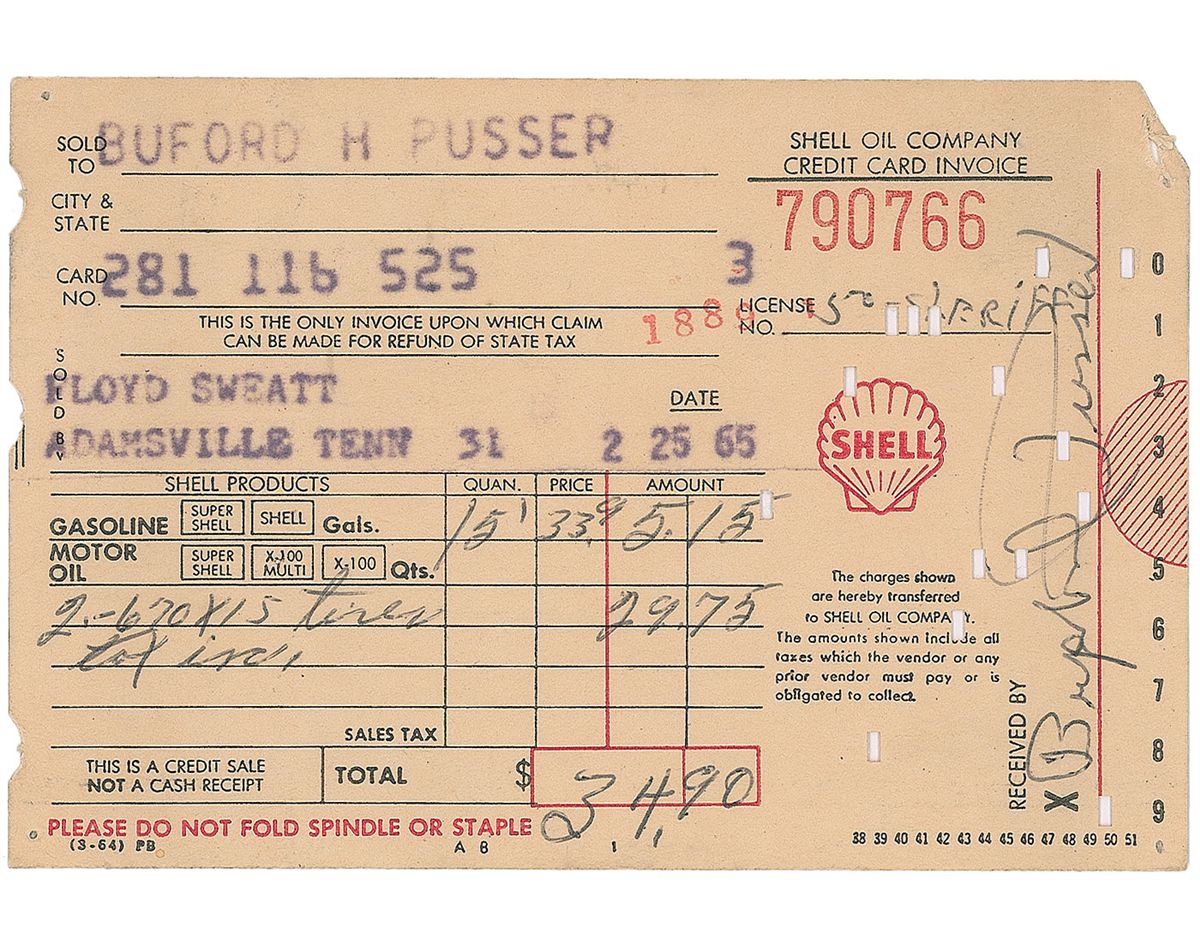 SOLD TO BUFORD H PUSSER
CITY & STATE
CARD NO. 281 116 525 3
THIS IS THE ONLY INVOICE UPON WHICH CLAIM
CAN BE MADE FOR REFUND OF STATE TAX
1889
SHELL OIL COMPANY
CREDIT CARD INVOICE
790766
LICENSE NO. SHERIFF
SOLD BY
FLOYD SWEATT
DATE
ADAMSVILLE TENN 31 2 25 65
SHELL
SHELL PRODUCTS QUAN. PRICE AMOUNT
GASOLINE SUPER SHELL SHELL Gals. 15 1 33.9 5.15
MOTOR OIL SUPER SHELL X-100 MULTI X-100 Qts.
2-670X15 tires 29.75
tax inc.
SALES TAX
THIS IS A CREDIT SALE
NOT A CASH RECEIPT
TOTAL $ 34.90
PLEASE DO NOT FOLD SPINDLE OR STAPLE
(3-64) PB A B 1
The charges shown
are hereby transferred
to SHELL OIL COMPANY.
The amounts shown include all
taxes which the vendor or any
prior vendor must pay or is
obligated to collect.
RECEIVED BY
X Buford Pusser
0
1
2
3
4
5
6
7
8
9
38 39 40 41 42 43 44 45 46 47 48 49 50 51